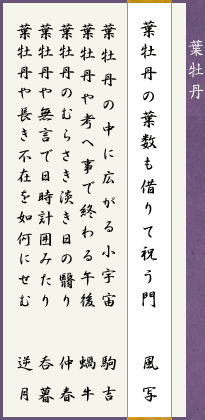 葉牡丹
葉牡丹の葉数も借りて祝う門　風写
葉牡丹の中に広がる小宇宙　駒吉
葉牡丹や考へ事で終わる午後　蝸牛
葉牡丹のむらさき淡き日の翳り　仲春
葉牡丹や無言で日時計囲みたり　呑暮
葉牡丹や長き不在を如何にせむ　逆月